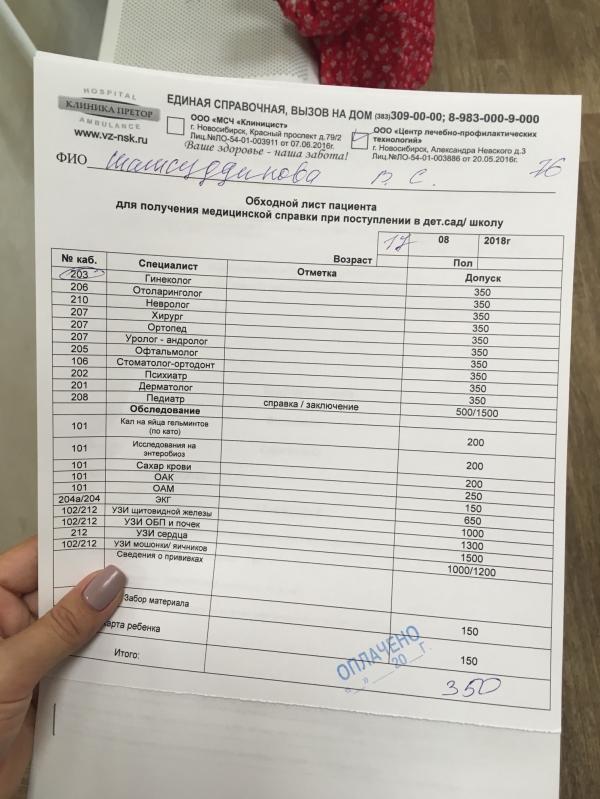 HOSPITAL
КЛИНИКА ПРЕТОР
AMBULANCE
www.vz-nsk.ru
ЕДИНАЯ СПРАВОЧНАЯ, ВЫЗОВ НА ДОМ (383)309-00-00; 8-983-000-9-000
ООО «МСЧ «Клиницист»
г. Новосибирск, Красный проспект д.79/2
Лиц.№ЛО-54-01-003911 от 07.06.2016г.
ООО «Центр лечебно-профилактических технологий»
г. Новосибирск, Александра Невского д.3
Лиц.№ЛО-54-01-003886 от 20.05.2016г.
Ваше здоровье - наша забота!
ФИО Шамсутдинова В. С.
Обходной лист пациента
для получения медицинской справки при поступлении в дет.сад/ школу
17 08 2018г
Возраст Пол
№ каб. Специалист Отметка Допуск
203 Гинеколог
206 Отоларинголог 350
210 Невролог 350
207 Хирург 350
207 Ортопед 350
207 Уролог - андролог 350
205 Офтальмолог 350
106 Стоматолог-ортодонт 350
202 Психиатр 350
201 Дерматолог 350
208 Педиатр справка / заключение 350
Обследование 500/1500
101 Кал на яйца гельминтов (по като) 200
101 Исследования на энтеробиоз 200
101 Сахар крови
101 ОАК 200
101 ОАМ 250
204а/204 ЭКГ 150
102/212 УЗИ щитовидной железы 650
102/212 УЗИ ОБП и почек 1000
212 УЗИ сердца 1300
102/212 УЗИ мошонки/ яичников 1500
Сведения о прививках 1000/1200
Забор материала
карта ребенка 150
Итого: 150
ОПЛАЧЕНО
« » 20 г.
350